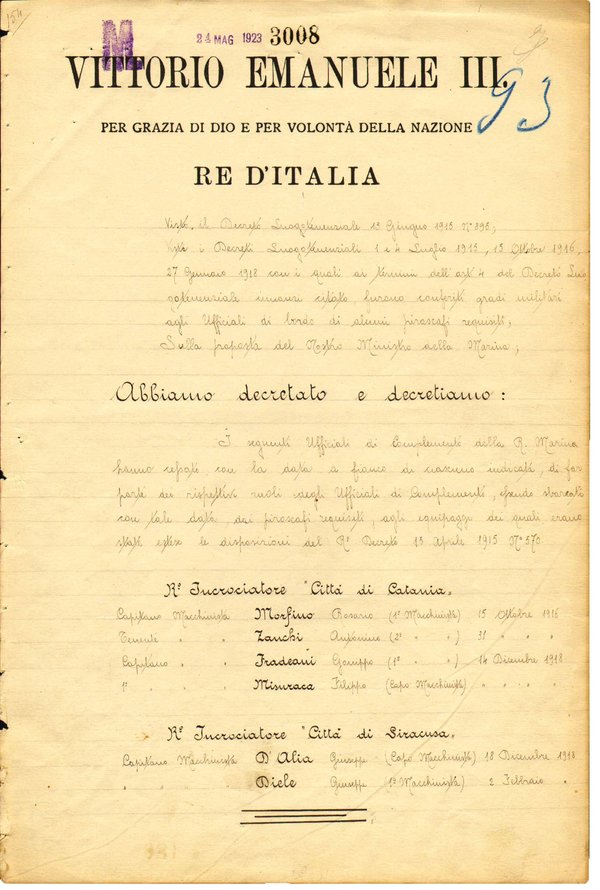 154
M
24 MAG 1923 3008
VITTORIO EMANUELE III.
93
PER GRAZIA DI DIO E PER VOLONTÀ DELLA NAZIONE
RE D'ITALIA
Visto il Decreto Luogotenenziale 13 Giugno 1915 N° 895;
Visti i Decreti Luogotenenziali 1 e 4 Luglio 1915, 15 Ottobre 1916,
27 Gennaio 1918 con i quali ai termini dell'art 4 del Decreto Luo
gotenenziale innanzi citato, furono conferiti gradi militari
agli Ufficiali di bordo di alcuni piroscafi requisiti;
Sulla proposta del Nostro Ministro della Marina;
Abbiamo decretato e decretiamo:
I seguenti Ufficiali di Complemento della R. Marina
hanno cessato con la data a fianco di ciascuno indicata, di far
parte dei rispettivi ruoli degli Ufficiali di Complemento, essendo sbarcati
con tale data dai piroscafi requisiti, agli equipaggi dei quali erano
state estese le disposizioni del R° Decreto 13 Aprile 1915 N° 570
R° Incrociatore "Città di Catania"
Capitano Macchinista Morfino Rosario (1° Macchinista) 15 Ottobre 1916
Tenente " " Zanchi Antonino (2° " ) 31 " "
Capitano " " Fradeani Giuseppe (1° " ) 14 Dicembre 1918
1° " " Misuraca Filippo (Capo Macchinista) " " "
R° Incrociatore "Città di Siracusa"
Capitano Macchinista D'Alia Giuseppe (Capo Macchinista) 18 Dicembre 1918
" " Diele Giuseppe (1° Macchinista) 2 Febbraio "